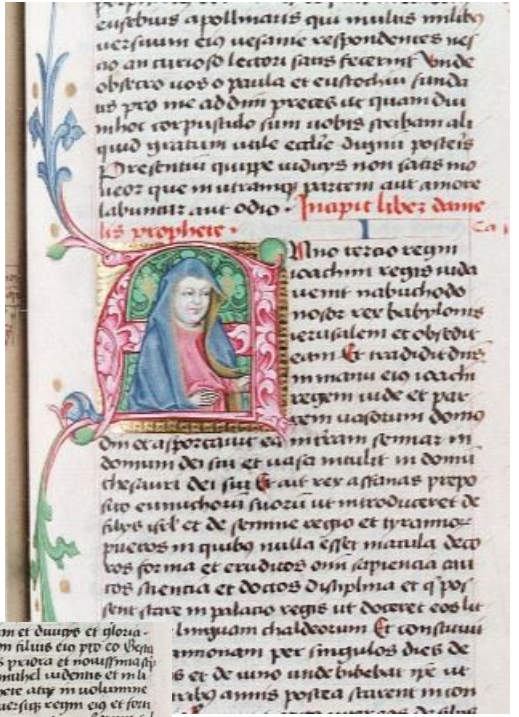 eusebius apollinaris qui multis milibꝰ
versuum eiꝰ vesanie respondentes nes
cio an curioso lectori satis fecerint Unde
obsecro vos o paula et eustochiu funda
tis pro me ad dnm preces ut quam diu
in hoc corpusculo sum vobis scribam ali
quid gratum utile ecclie dignu posteris
Presentiu quippe iudicijs non satis mo
veor que in utramqꝫ partem aut amore
labuntur aut odio · Incipit liber danie
lis prophete · Ca I
Anno tercio regni
ioachim regis iuda
venit nabuchodo
nosor rex babylonis
ierusalem et obsedit
eam Et tradidit dns
in manu eiꝰ ioachi
regem iude et par
tem vasorum domꝰ
dni et asportavit ea in terram sennar in
domum dei sui et vasa intulit in domu
thesauri dei sui Et ait rex asfanas prepo
sito eunuchorum suorum ut introduceret de
filijs isrl et de semine regio et tyrannoꝝ
pueros in quibꝰ nulla esset macula deco
ros forma et eruditos omi sapiencia cau
tos sciencia et doctos disciplina et q pos
sent stare in palacio regis ut doceret eos lit
linguam chaldeorum Et constituit
annonam per singulos dies de
s et de vino unde bibebat ipe ut
tribꝰ annis postea starent in con
m et duugis et gloria
m filius eiꝰ pro eo Gesta
s priora et novissima sc
muhel videntis et in li
hete atqꝫ in volumine
versiqꝫ regni eiꝰ et forti